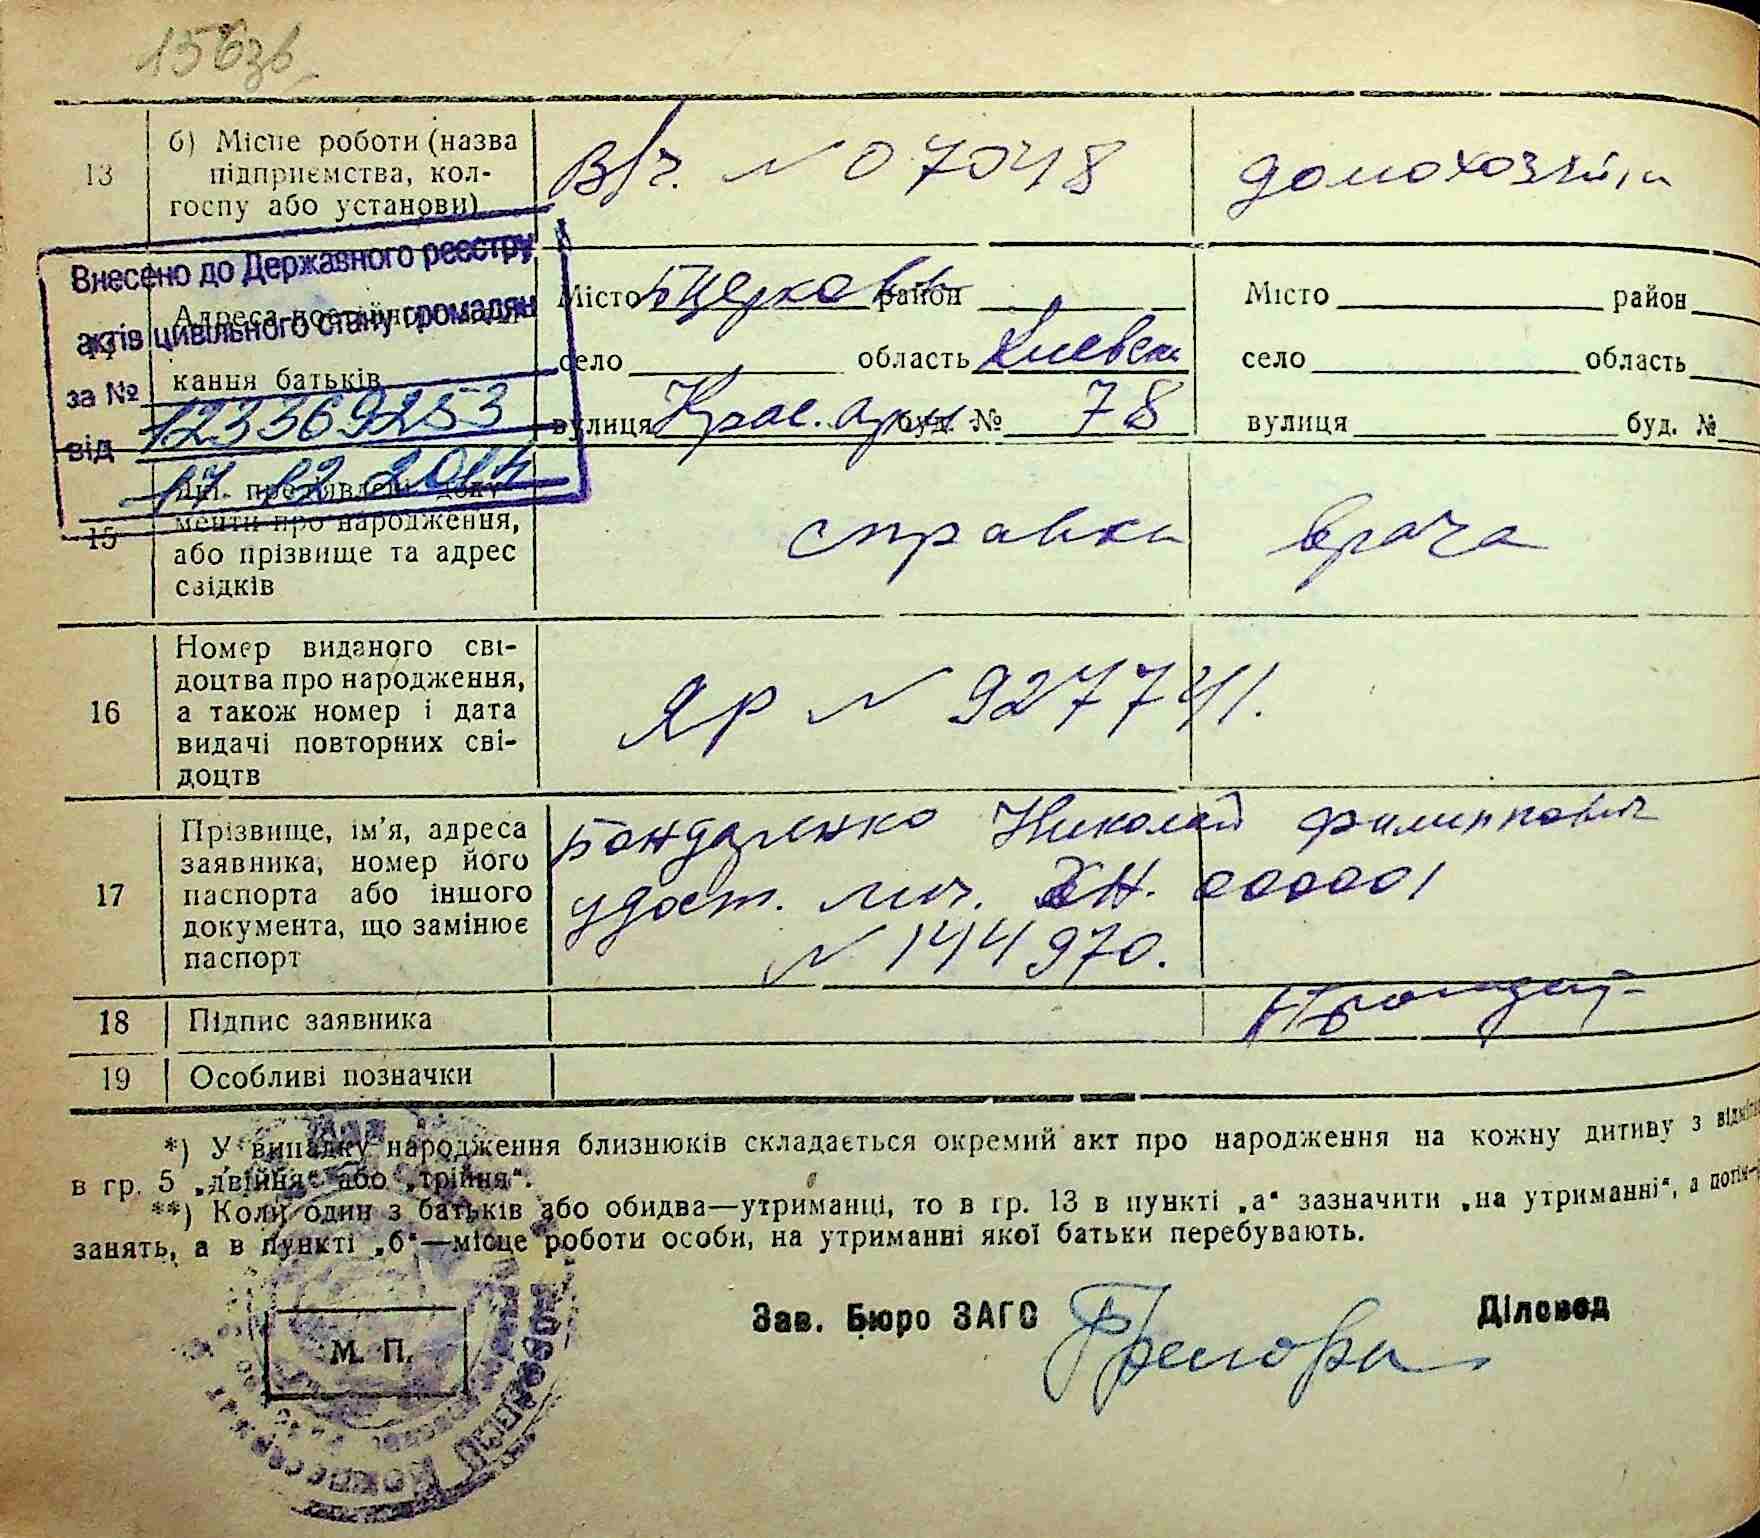 156зв
13
б) Місце роботи (назва
підприємства, кол-
госпу або установи)
В/ч. N 07048
домохозяйка
Внесено до Державного реєстру
актів цивільного стану громадян
за № 123369253
від 17 12 2014
кання батьків
Місто Б Церковь район
село область Киевская
вулиця Крас. арм. буд. № 78
Місто район
село область
вулиця буд. №
15
менти про народження,
або прізвище та адрес
свідків
справка врача
16
Номер виданого сві-
доцтва про народження,
а також номер і дата
видачі повторних сві-
доцтв
ЯР N 927741.
17
Прізвище, ім'я, адреса
заявника, номер його
паспорта або іншого
документа, що замінює
паспорт
Бондаренко Николай Филиппович
удост. лич. ХН. 000001
N 144970.
18 Підпис заявника
19 Особливі позначки
*) У випадку народження близнюків складається окремий акт про народження на кожну дитину з
в гр. 5 „двійня“ або „трійня“.
**) Коли один з батьків або обидва—утриманці, то в гр. 13 в пункті „а“ зазначити „на утриманні“, а потім
занять, а в пункті „б“—місце роботи особи, на утриманні якої батьки перебувають.
М. П.
Зав. Бюро ЗАГС
Діловод